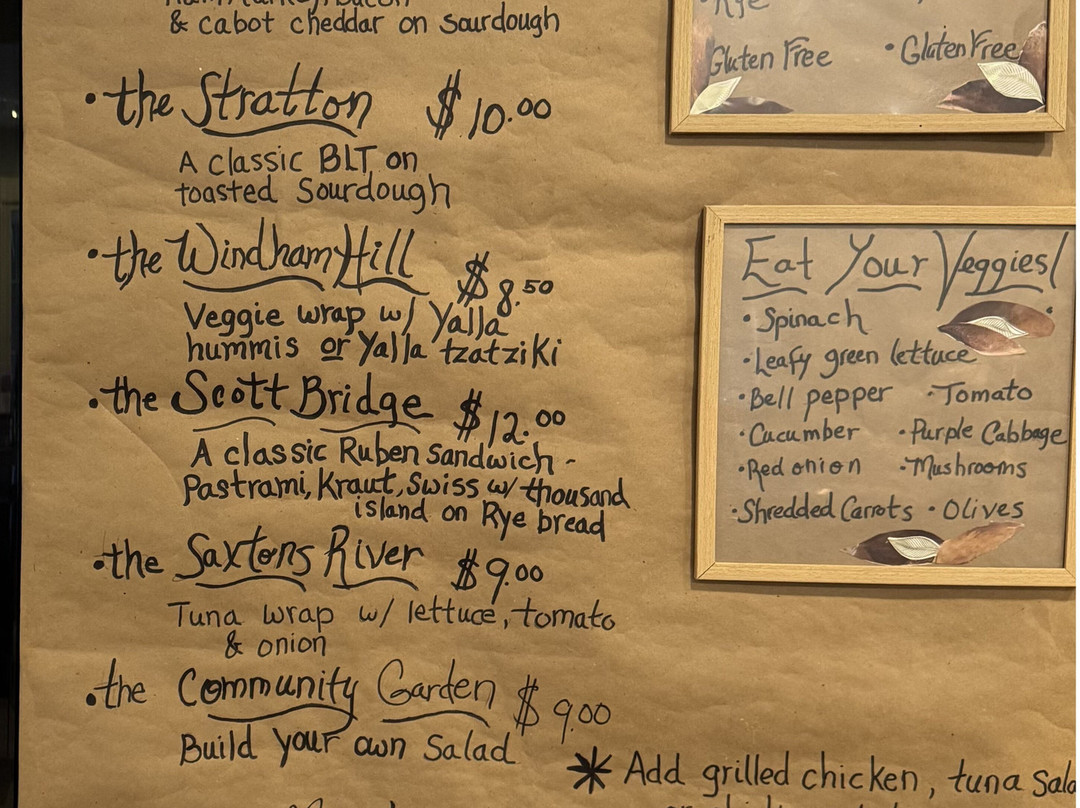 & cabot cheddar on sourdough
• the Stratton $10.00
A classic BLT on
toasted Sourdough
• the Windham Hill $8.50
Veggie wrap w/ Yalla
hummis or Yalla tzatziki
• the Scott Bridge $12.00
A classic Ruben sandwich -
Pastrami, Kraut, Swiss w/ thousand
island on Rye bread
• the Saxtons River $9.00
Tuna wrap w/ lettuce, tomato
& onion
• the Community Garden $9.00
Build your own Salad
* Add grilled chicken, tuna
• Rye
Gluten Free • Gluten Free
Eat Your Veggies!
• Spinach
• Leafy green lettuce
• Bell pepper • Tomato
• Cucumber • Purple Cabbage
• Red onion • Mushrooms
• Shredded Carrots • Olives